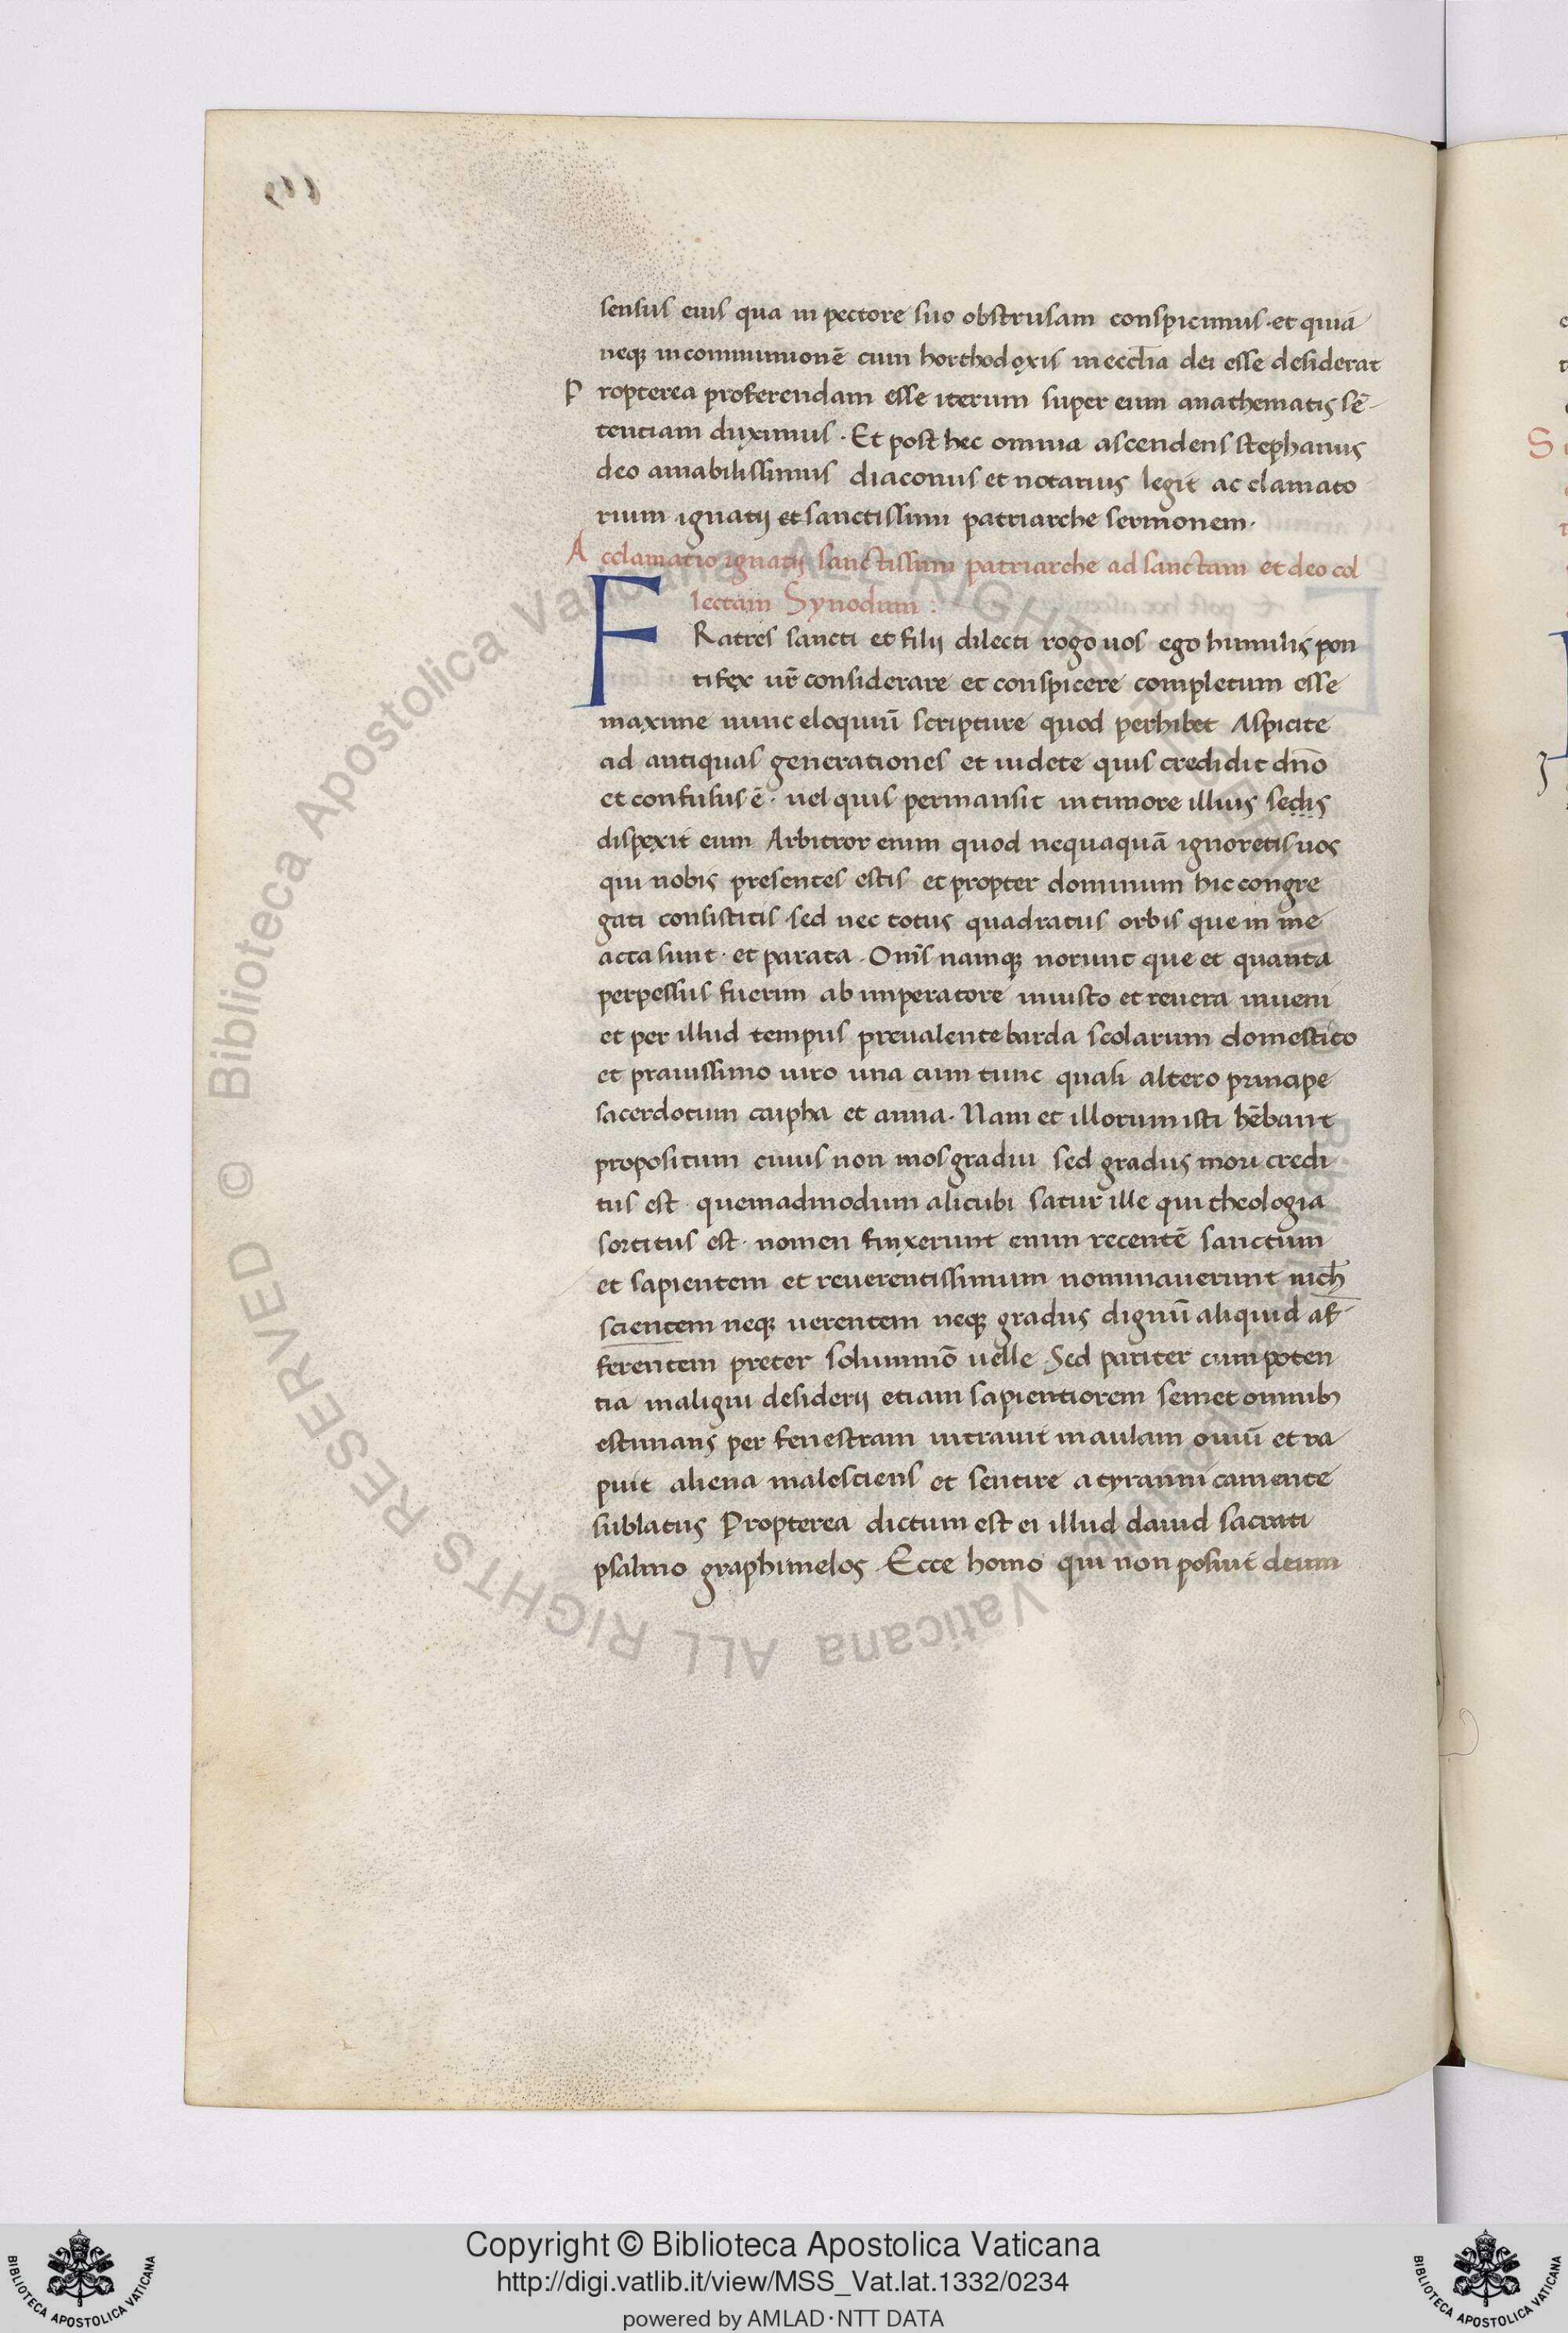 sensus eius qua in pectore suo obstrusam conspicimus · et quia
neq; in communionē cum horthodoxis in eccl̄ia dei esse desiderat
Propterea proferendam esse iterum super eum anathematis sē-
tentiam duximus · Et post hec omnia ascendens stephanus
deo amabilissimus diaconus et notarius legit ac clamato
rium ignatij et sanctissimi patriarche sermonem ·
Acclamatio ignatij sanctissimi patriarche ad sanctam et deo col
lectam Synodum :
FRatres sancti et filij dilecti rogo uos ego humilis pon
tifex ur̄ considerare et conspicere completum esse
maxime nunc eloquiū scripture quod perhibet Aspicite
ad antiquas generationes et uidete quis credidit dn̄o
et confusus ē · uel quis permansit in timore illius sedis
dispexit eum Arbitror enim quod nequaquā ignoretis uos
qui nobis presentes estis et propter dominum hic congre
gati consistitis · sed nec totus quadratus orbis que in me
acta sunt · et parata · Om̄s namq; norunt que et quanta
perpessus fuerim ab imperatore iniusto et reuera iuueni
et per illud tempus preualente barda scolarum domestico
et prauissimo uiro una cum tunc quasi altero principe
sacerdotum caipha et anna · Nam et illorum isti hēbant
propositum cuius non mos gradui sed gradus mori credi
tus est · quemadmodum alicubi satur ille qui theologia
sortitus est · nomen finxerunt enim recentē sanctum
et sapientem et reuerentissimum nominauerunt nich̄
scientem neq; uerentem neq; gradus dignū aliquid af-
ferentem preter solummō uelle · Sed pariter cum poten
tia maligni desiderij etiam sapientiorem semet omnib;
estimans per fenestram intrauit in aulam ouiū et ra
puit aliena male sciens et sentire a tyrannica mente
sublatus Propterea dictum est ei illud dauid sacrati
psalmo graphimelos · Ecce homo qui non posuit deum
Copyright © Biblioteca Apostolica Vaticana
http://digi.vatlib.it/view/MSS_Vat.lat.1332/0234
powered by AMLAD·NTT DATA